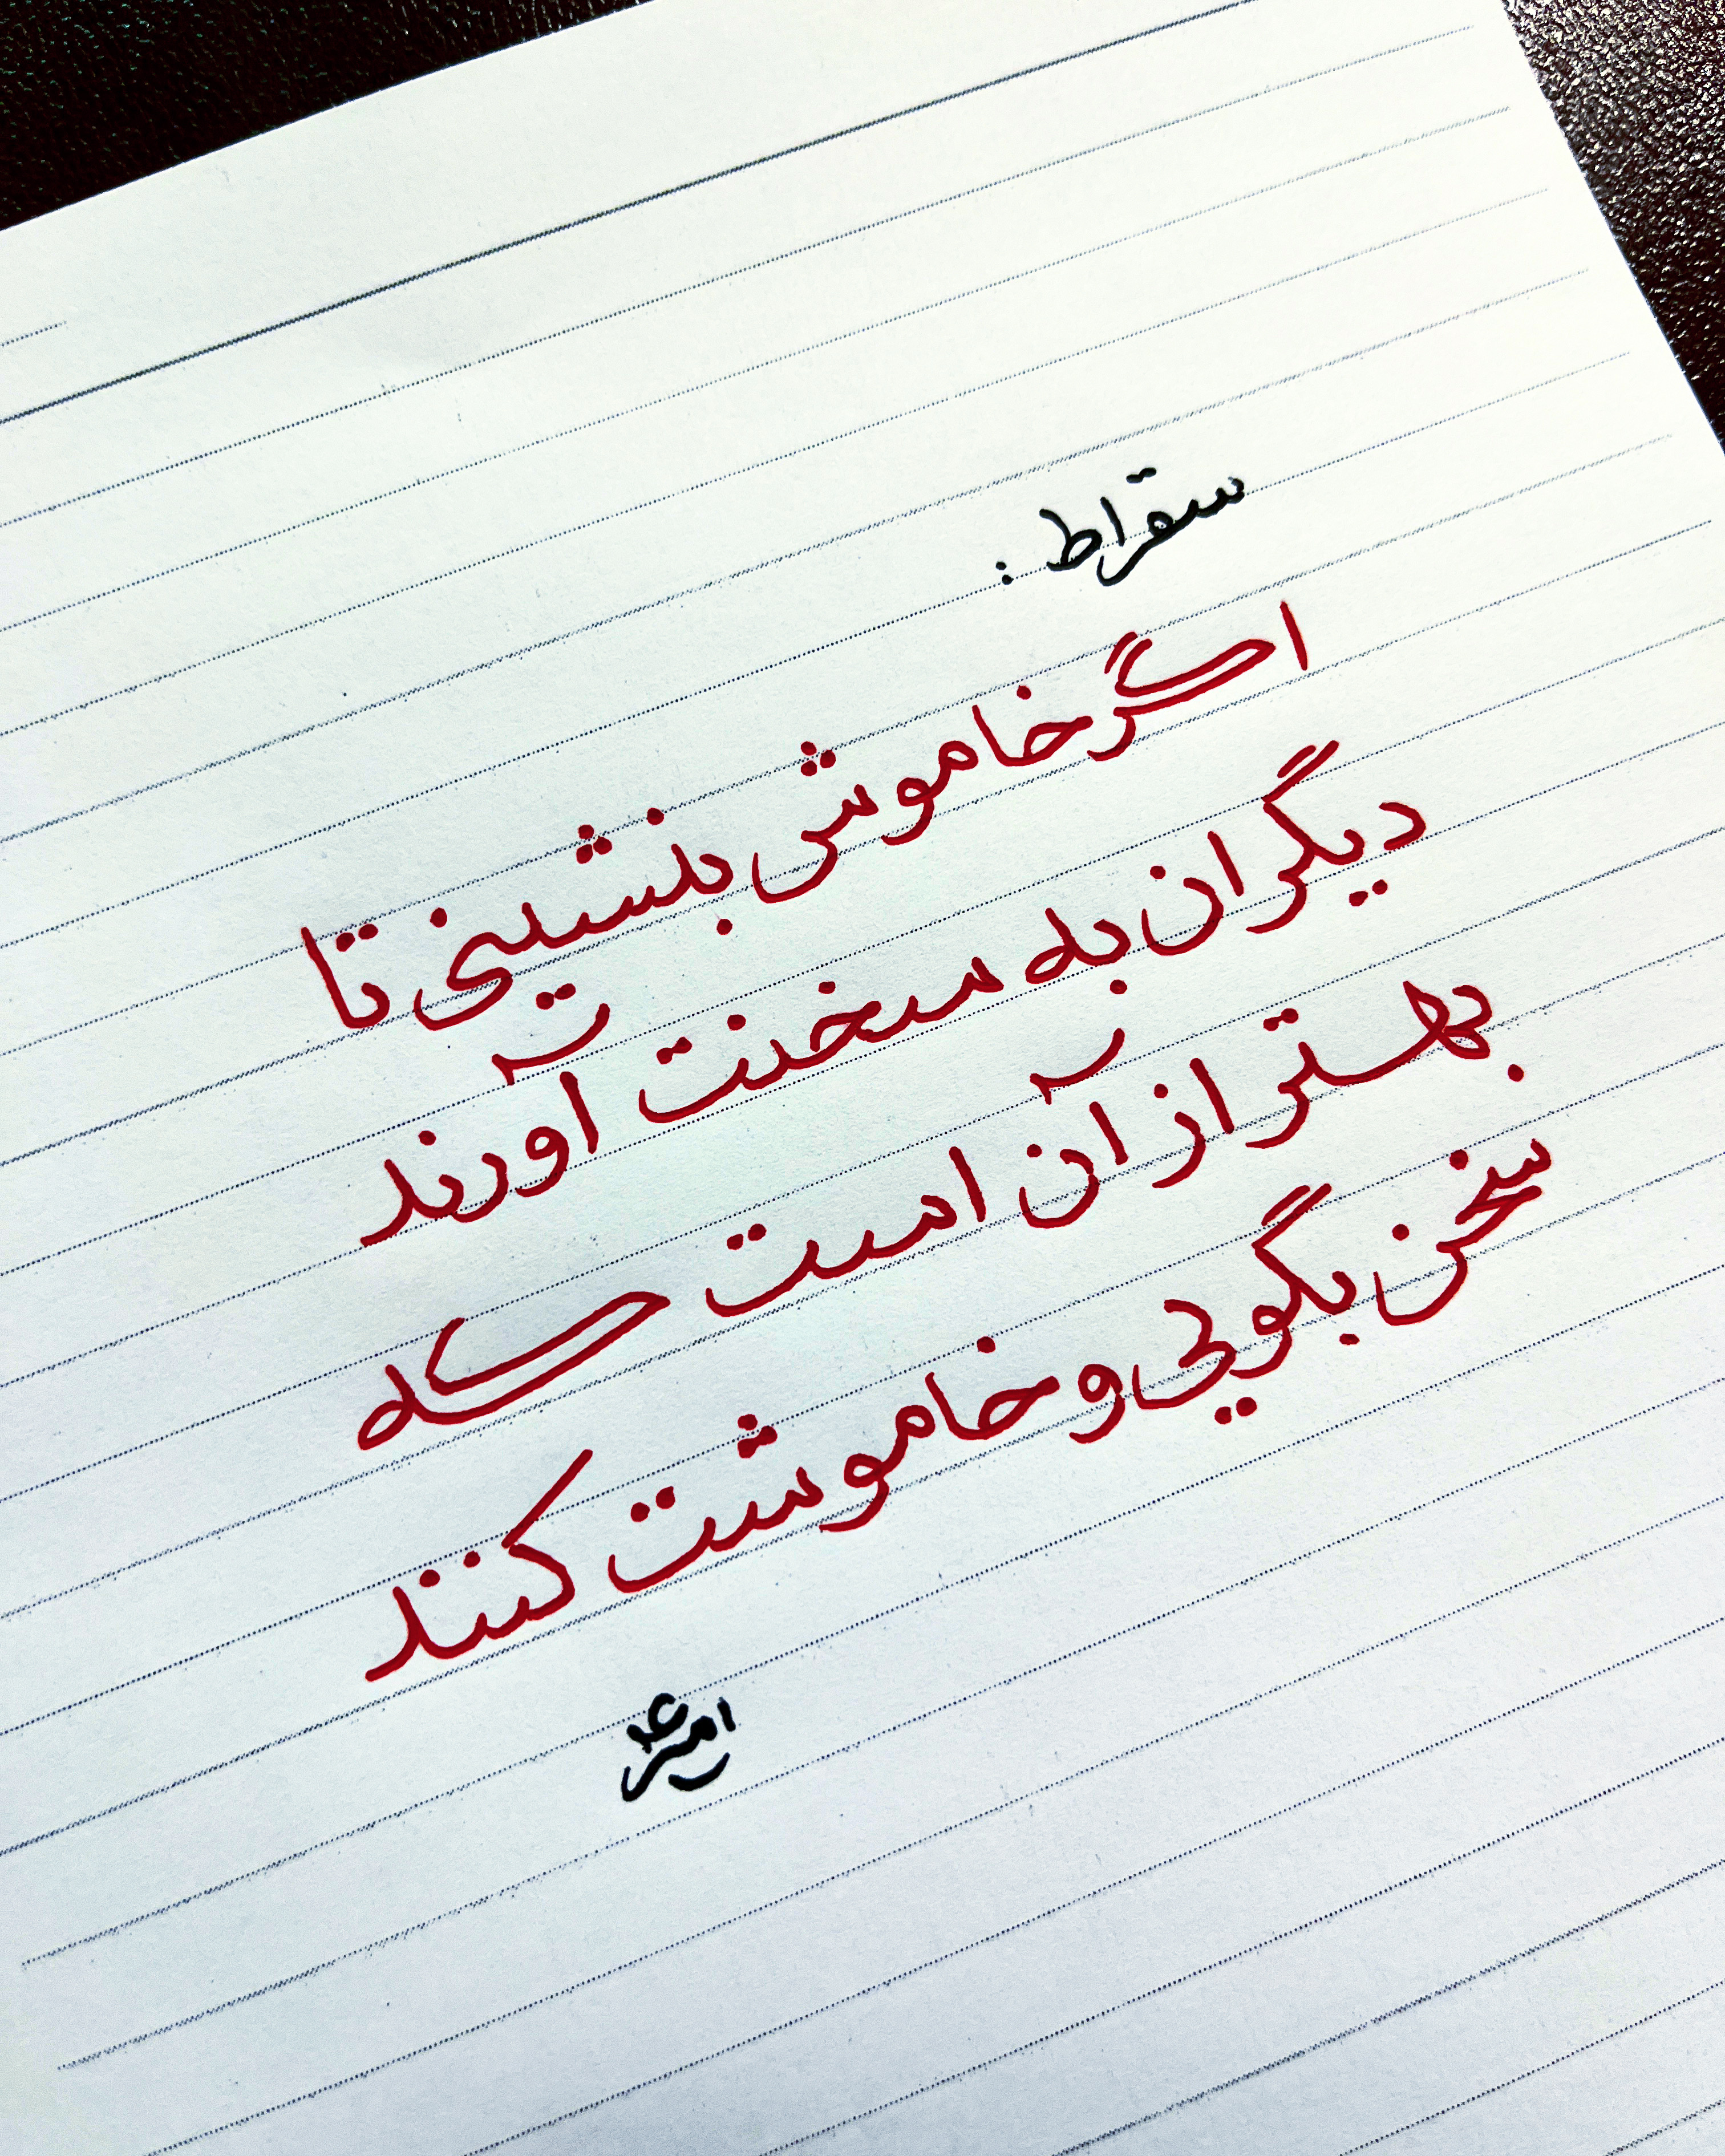 سقراط :
اگر خاموش بنشینی تا
دیگران به سخنت آورند
بهتر از آن است که
سخن بگویی و خاموشت کنند